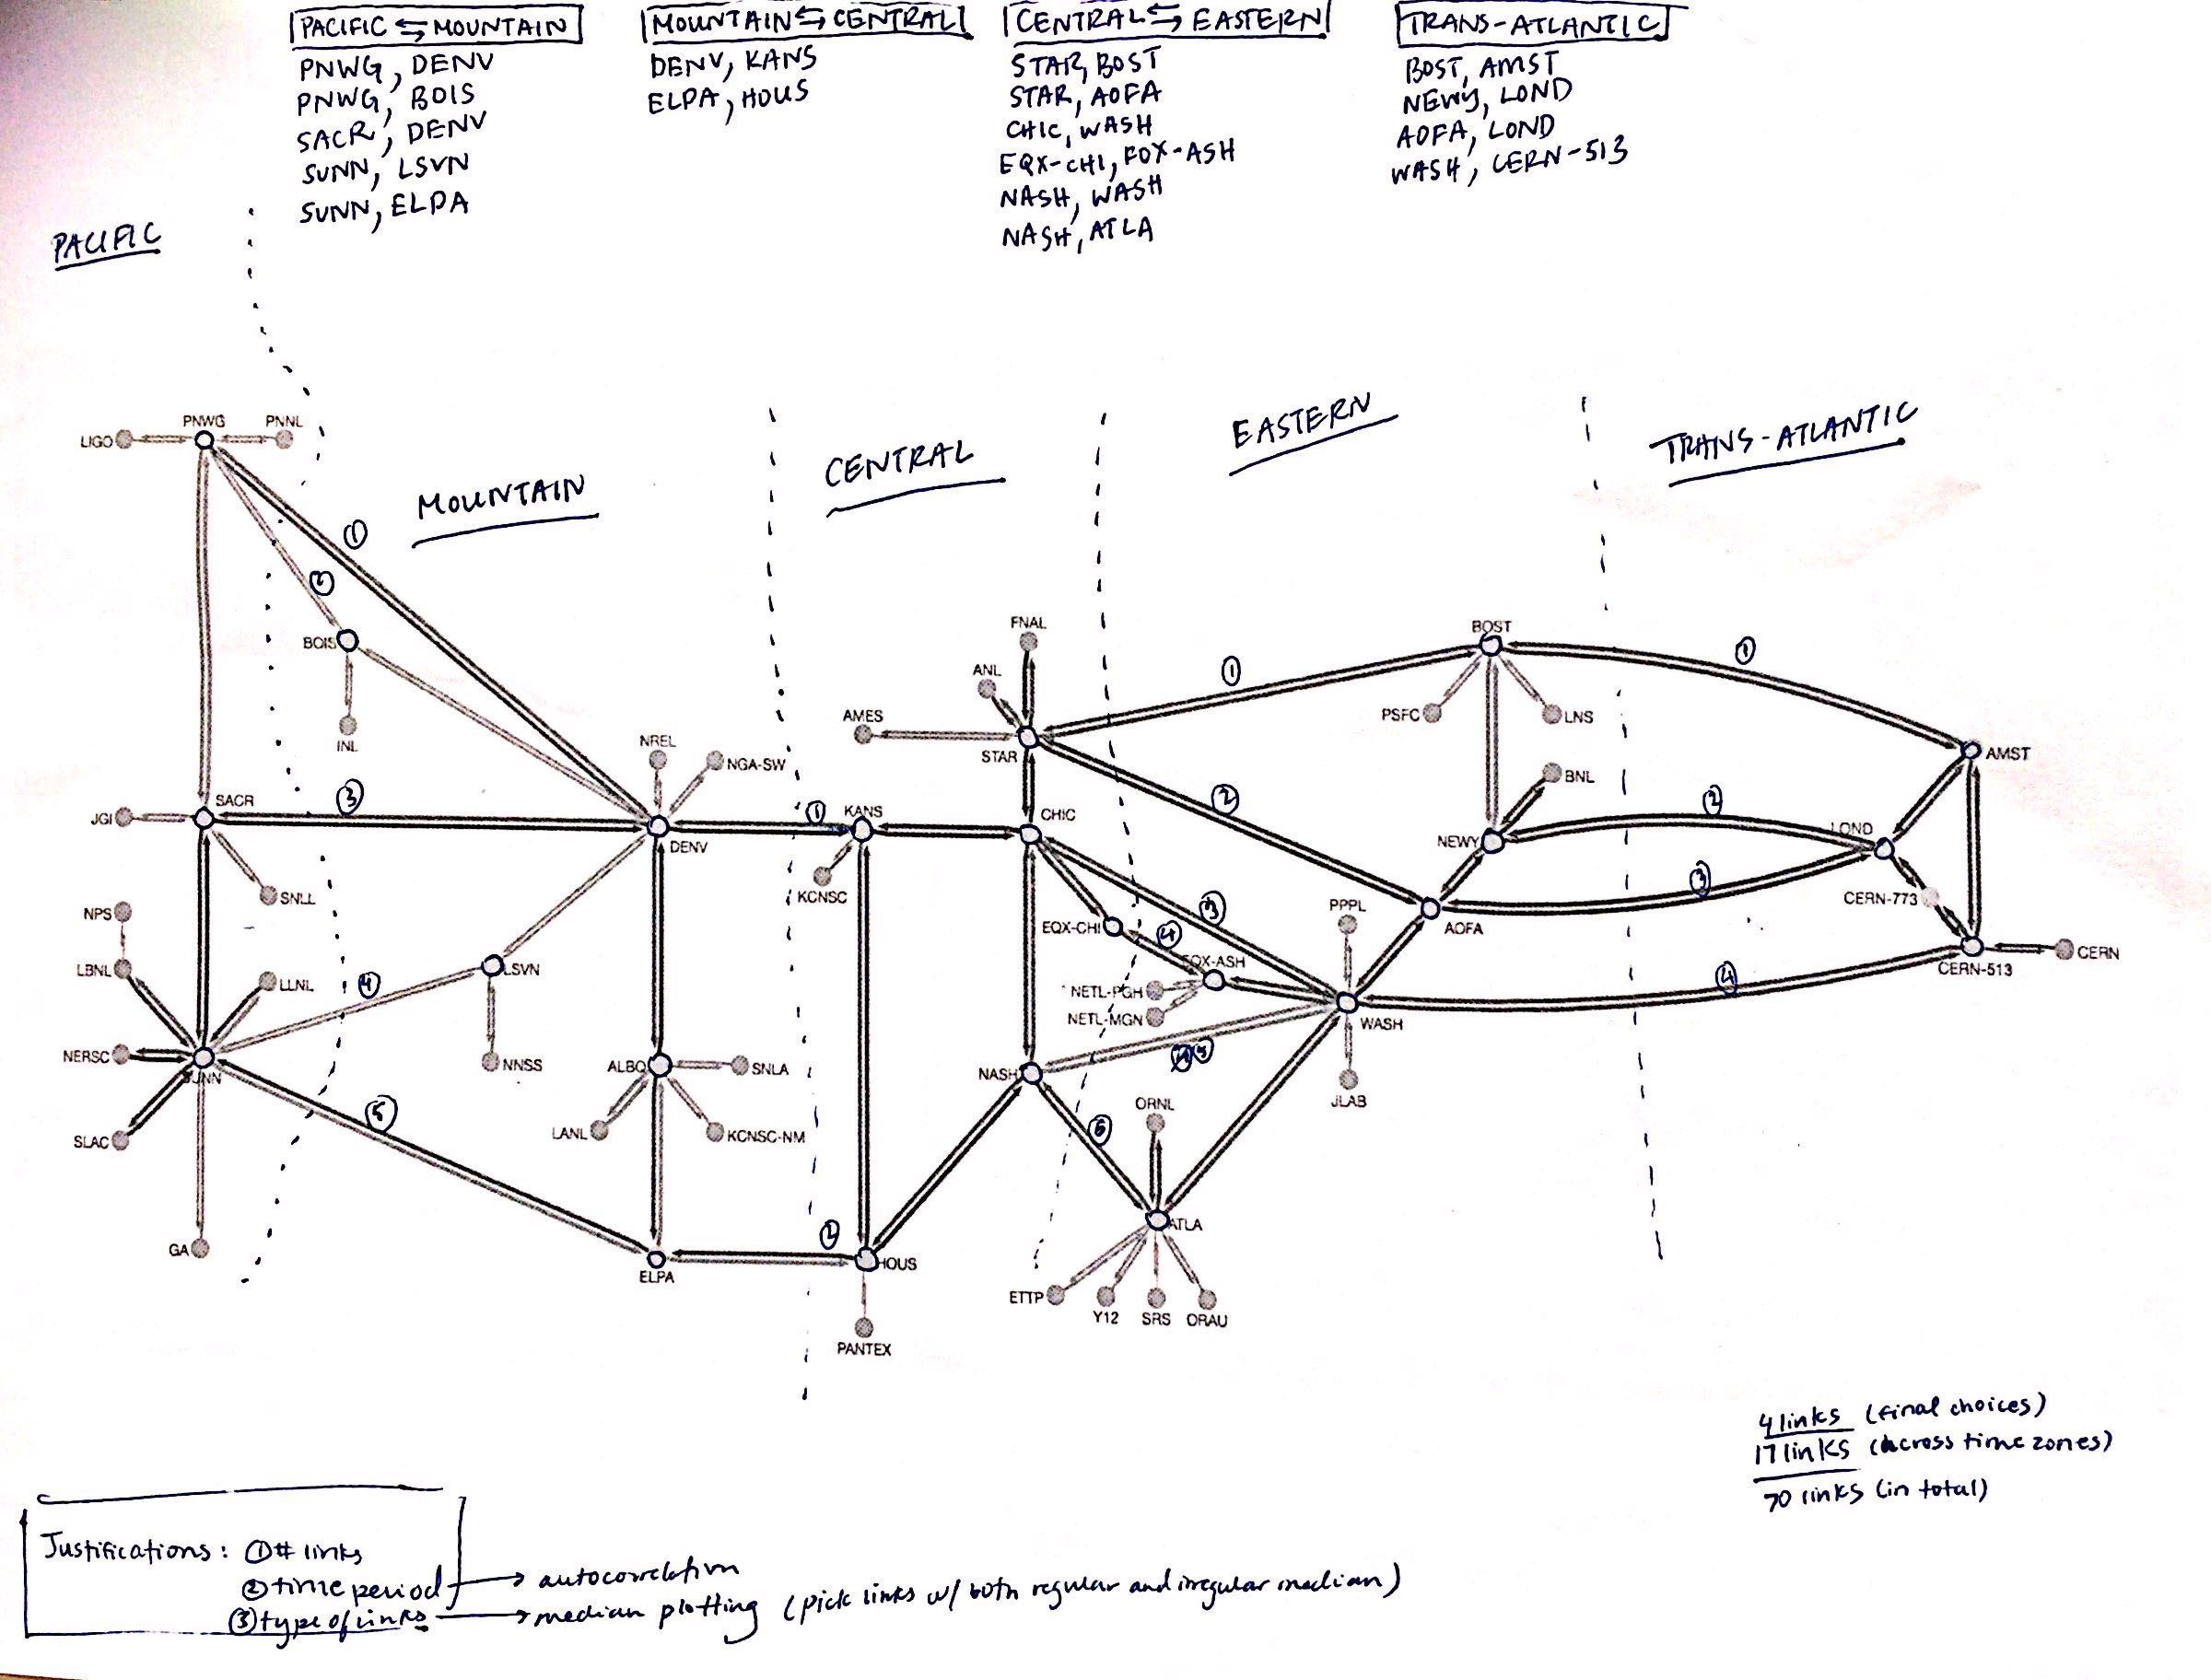 PACIFIC ⇆ MOUNTAIN
PNWG, DENV
PNWG, BOIS
SACR, DENV
SUNN, LSVN
SUNN, ELPA
MOUNTAIN ⇆ CENTRAL
DENV, KANS
ELPA, HOUS
CENTRAL ⇆ EASTERN
STAR, BOST
STAR, AOFA
CHIC, WASH
EQX-CHI, EQX-ASH
NASH, WASH
NASH, ATLA
TRANS-ATLANTIC
BOST, AMST
NEWY, LOND
AOFA, LOND
WASH, CERN-513
PACIFIC
MOUNTAIN
CENTRAL
EASTERN
TRANS-ATLANTIC
LIGO
PNWG
PNNL
①
②
BOIS
INL
JGI
SACR
③
SNLL
NREL
NGA-SW
DENV
①
KANS
KCNSC
NPS
LBNL
LLNL
④
LSVN
NNSS
NERSC
SUNN
SLAC
GA
⑤
ALBQ
SNLA
LANL
KCNSC-NM
ELPA
②
HOUS
PANTEX
FNAL
ANL
AMES
STAR
CHIC
①
②
③
EQX-CHI
④
EQX-ASH
NETL-PGH
NETL-MGN
NASH
⑤
⑥
ORNL
ATLA
ETTP
Y12
SRS
ORAU
BOST
PSFC
LNS
BNL
NEWY
AOFA
PPPL
WASH
JLAB
①
AMST
②
LOND
③
CERN-773
CERN-513
CERN
④
4 links (final choices)
17 links (across time zones)
70 links (in total)
Justifications: ① # links
② time period → autocorrelation
③ type of links → median plotting (pick links w/ both regular and irregular median)